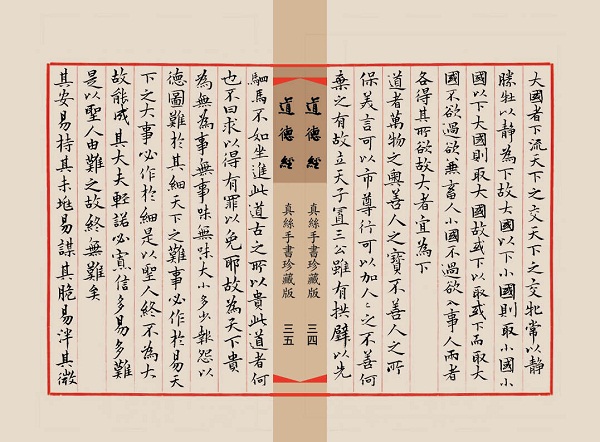 大國者下流天下之交天下之交牝常以靜
勝牡以靜為下故大國以下小國則取小國小
國以下大國則取大國故或下以取或下而取大
國不欲過欲兼畜人小國不過欲入事人兩者
各得其所欲故大者宜為下
道者萬物之奧善人之寶不善人之所
保美言可以市尊行可以加人〻之不善何
棄之有故立天子置三公雖有拱璧以先
道德經 真絲手書珍藏版 三四
道德經 真絲手書珍藏版 三五
駟馬不如坐進此道古之所以貴此道者何
也不曰求以得有罪以免耶故為天下貴
為無為事無事味無味大小多少報怨以
德圖難於其細天下之難事必作於易天
下之大事必作於細是以聖人終不為大
故能成其大夫輕諾必寡信多易多難
是以聖人由難之故終無難矣
其安易持其未兆易謀其脆易泮其微